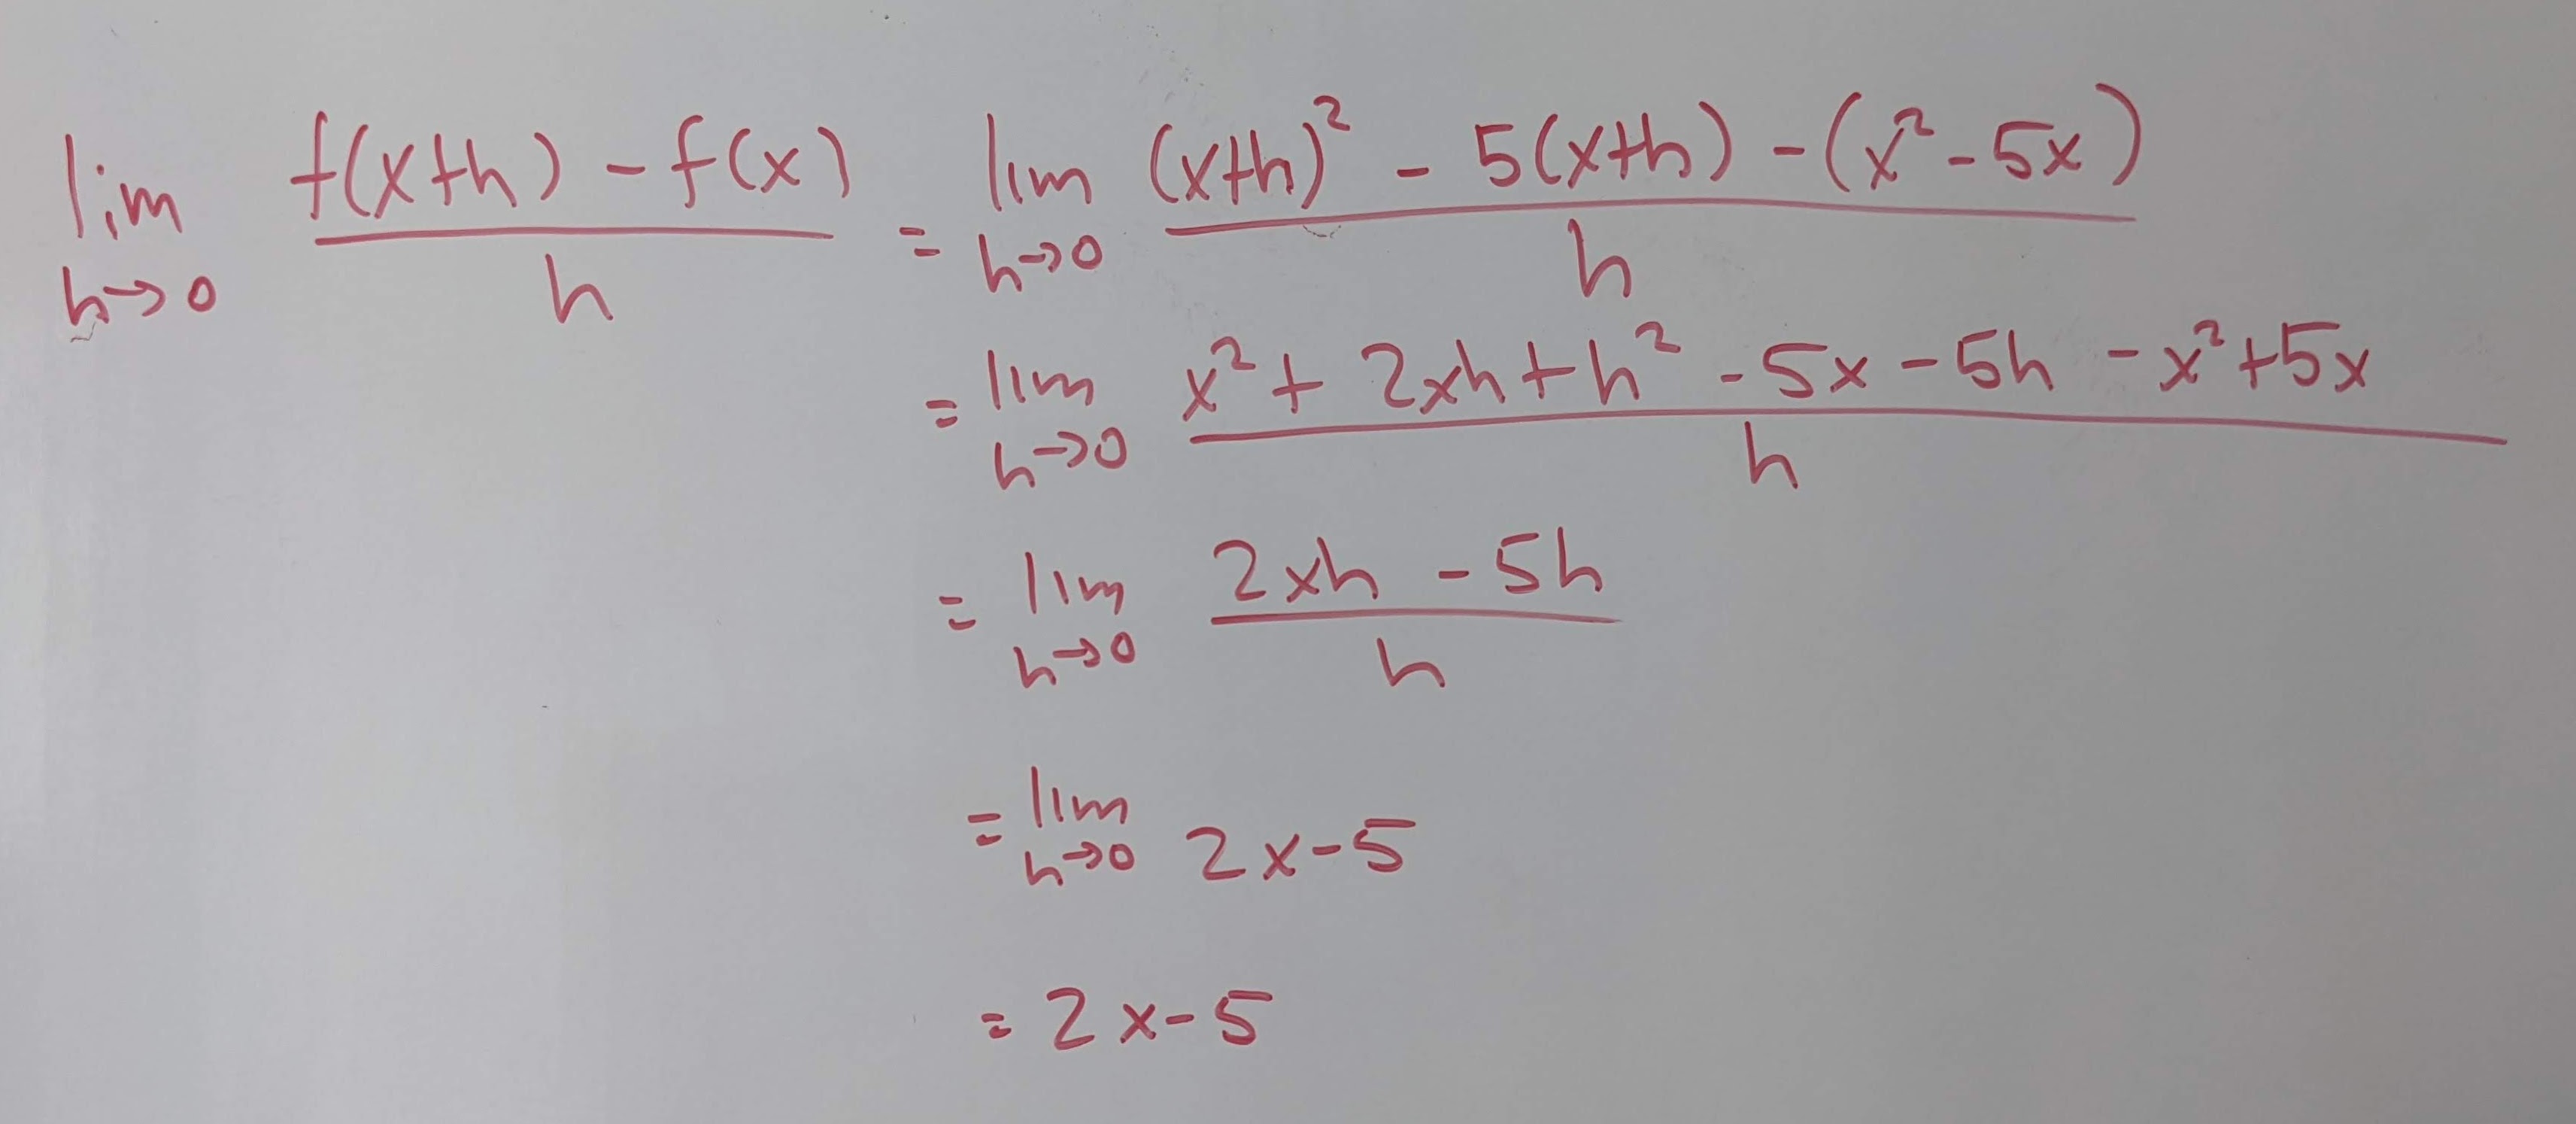 lim h→0 (f(x+h) - f(x))/h = lim h→0 ((x+h)² - 5(x+h) - (x² - 5x))/h
= lim h→0 (x² + 2xh + h² - 5x - 5h - x² + 5x)/h
= lim h→0 (2xh - 5h)/h
= lim h→0 2x - 5
= 2x - 5